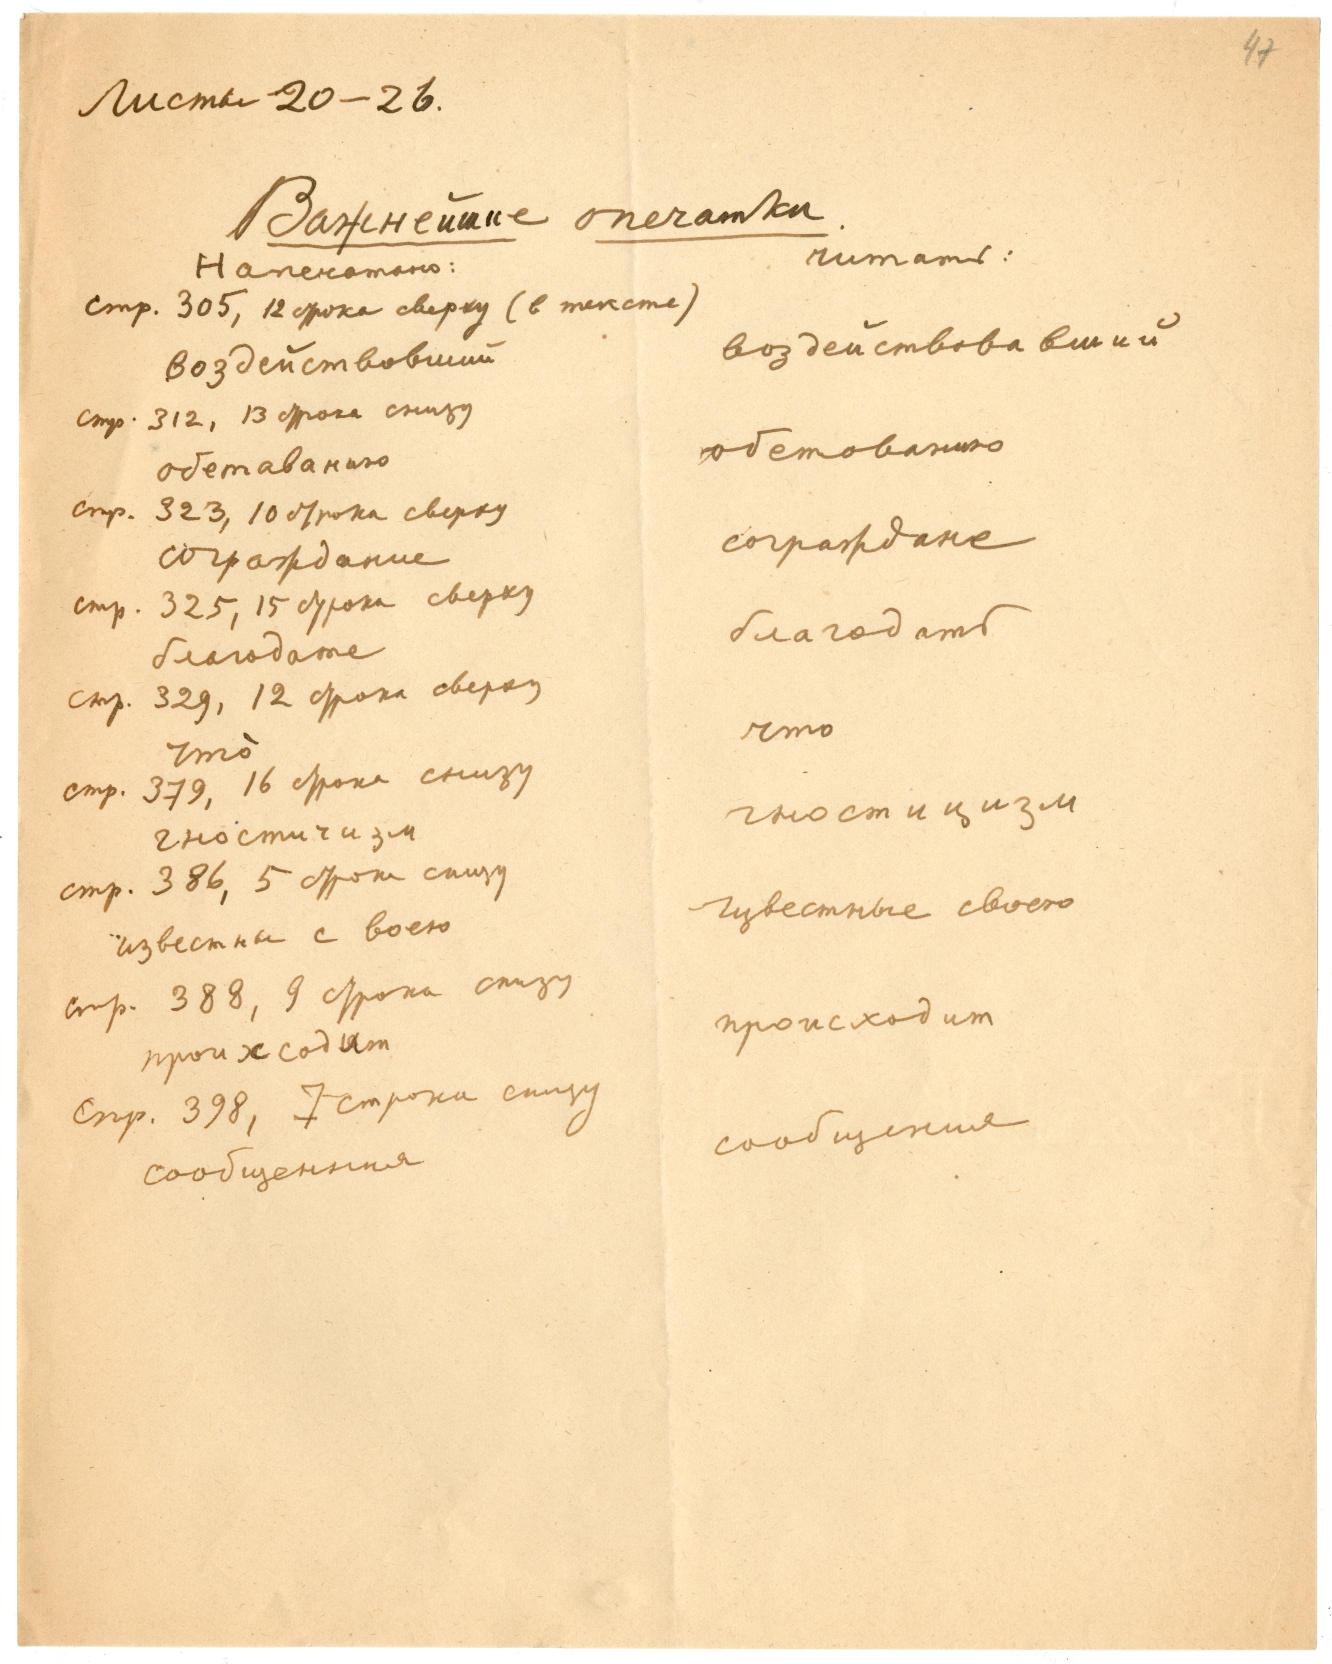 47
Листы 20–26.
Важнейшие опечатки.
Напечатано: читать:
стр. 305, 12 строка сверху (в тексте)
воздействовший воздействовавший
стр. 312, 13 строка снизу
обетаванию обетованию
стр. 323, 10 строка сверху
сограждание сограждане
стр. 325, 15 строка сверху
благодате благодать
стр. 329, 12 строка сверху
что̀ что
стр. 379, 16 строка снизу
гностичизм гностицизм
стр. 386, 5 строка снизу
известны с воею своею
стр. 388, 9 строка снизу
проихсодит происходит
Стр. 398, 7 строка снизу
сообщенния сообщения